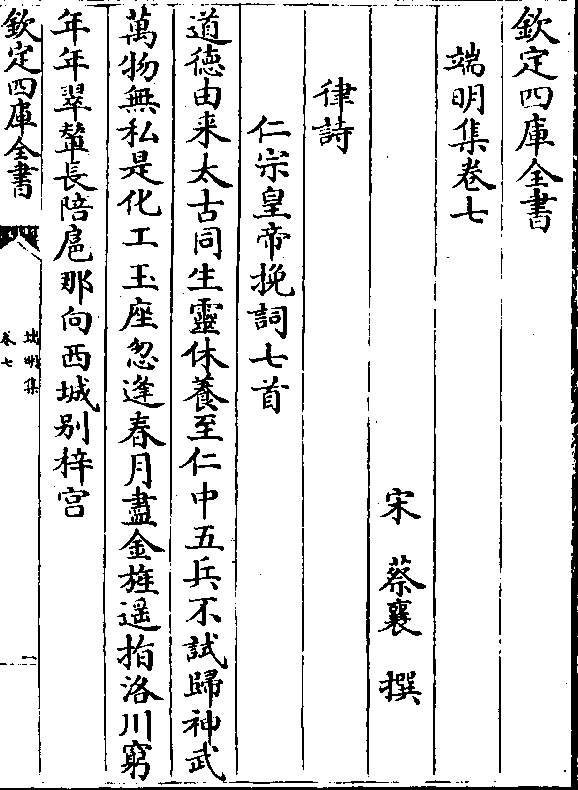 欽定四庫全書
端明集卷七
宋 蔡襄 撰
律詩
仁宗皇帝挽詞七首
道德由来太古同生靈休養至仁中五兵不試歸神武
萬物無私是化工玉座忽逢春月盡金旌遥指洛川窮
年年翠輦長陪扈那向西城别梓宫
欽定四庫全書
端明集
卷七
一